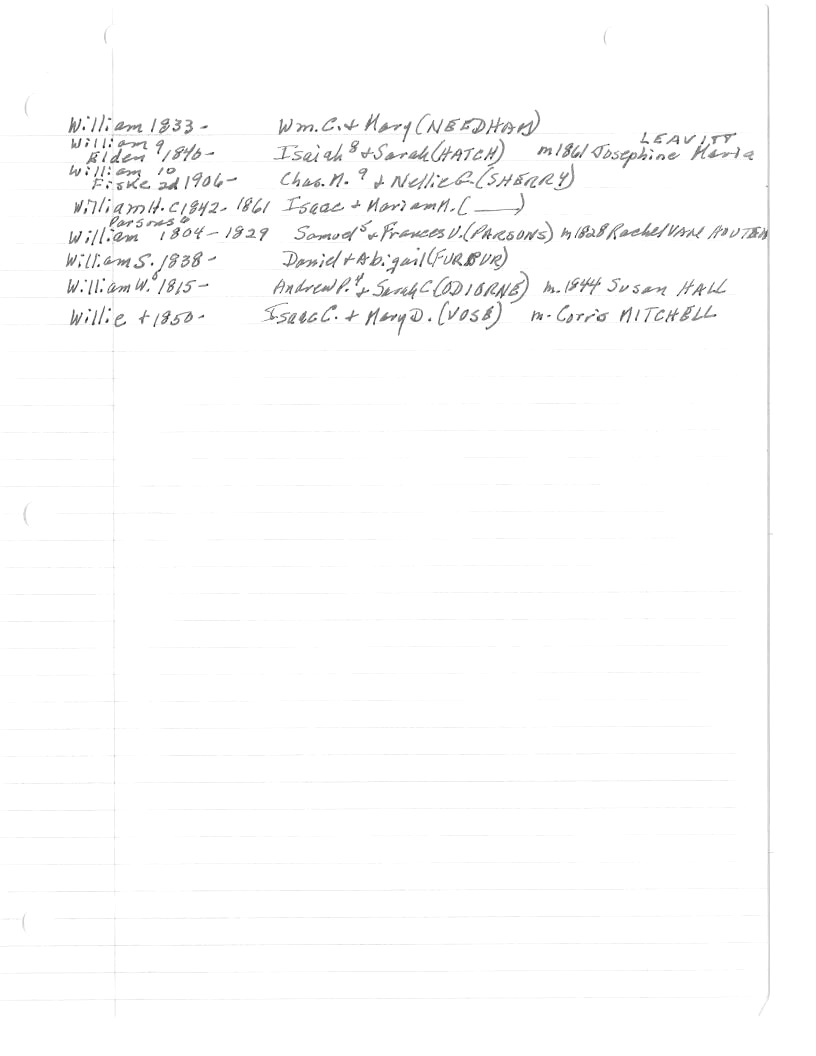 William 1833 - Wm. C. + Mary (NEEDHAM)
William 9 LEAVITT
Elden 1846 - Isaiah 8 + Sarah (HATCH) m 1861 Josephine Maria
William 10
Fiske 2d 1906 - Chas. M. 9 + Nellie G. (SHERRY)
William H. C 1842 - 1861 Isaac + Mariam M. ( ___ )
Parsons 6
William 1804 - 1829 Samuel 5 + Frances U. (PARSONS) m 1828 Rachel VAN HOUTEN
William S. 1838 - Daniel + Abigail (FURBUR)
William W. 8 1815 - Andrew P. 4 + Sarah C (ODIORNE) m. 1844 Susan HALL
Willie + 1850 - Isaac C. + Mary D. (VOSE) m - Corris MITCHELL